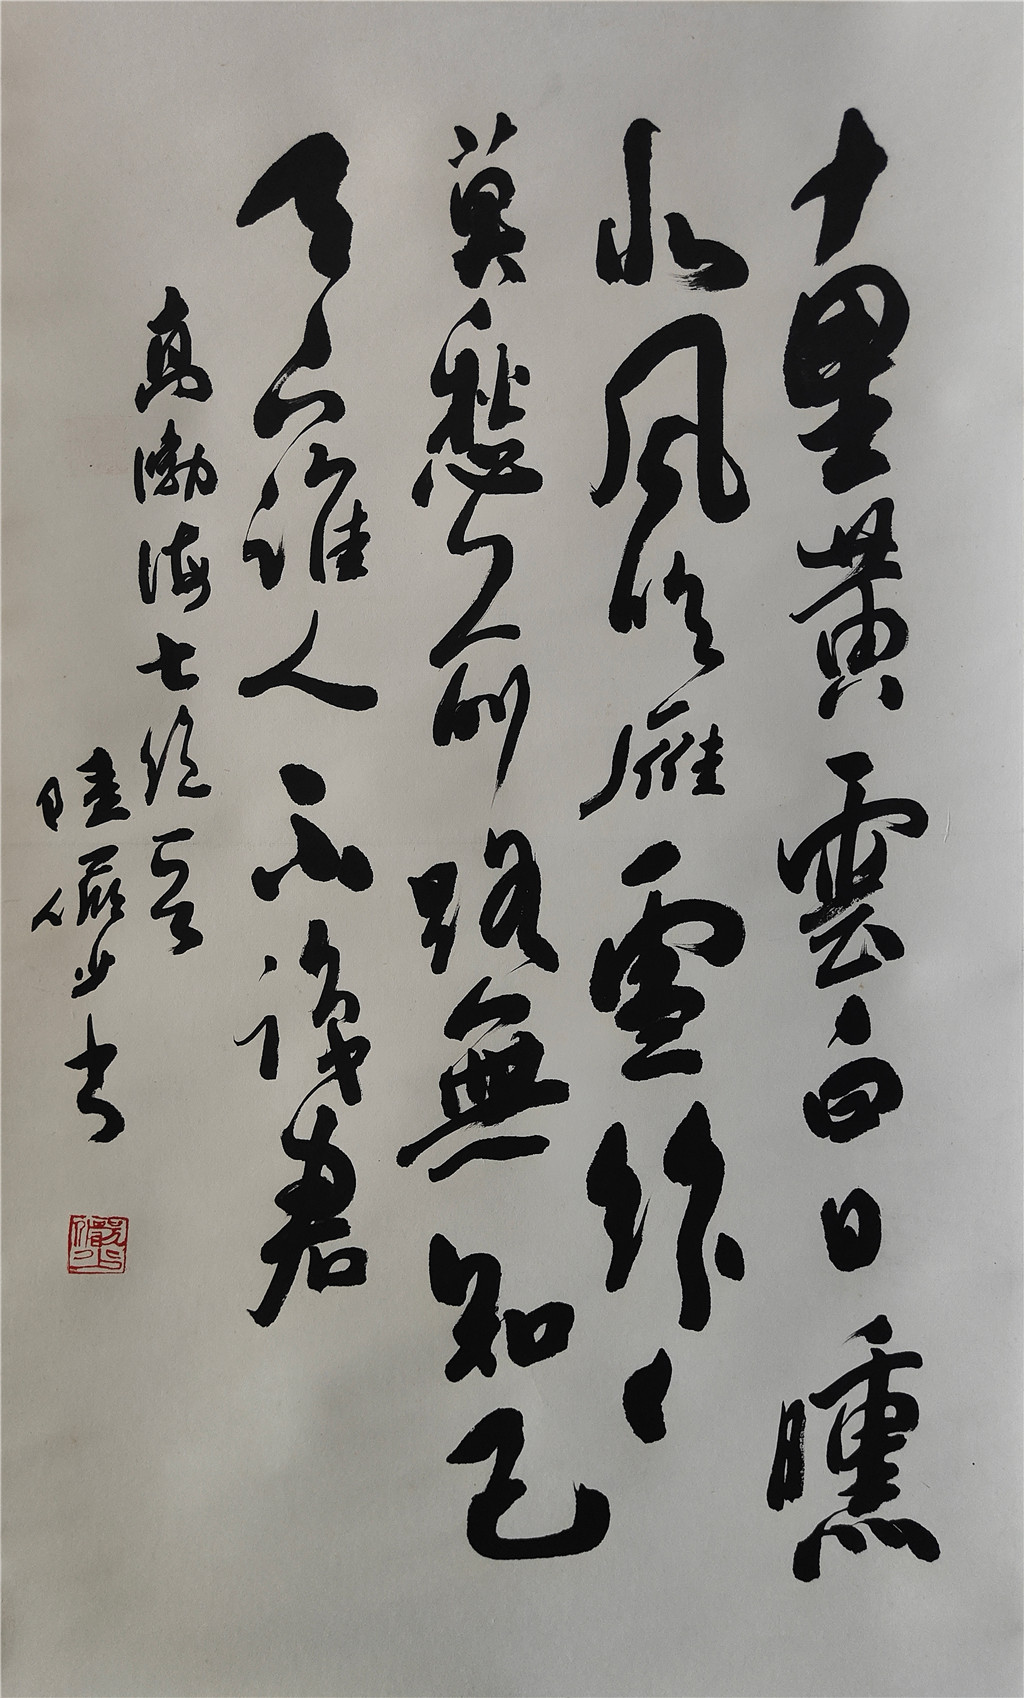 十里黃雲白日曛
北風吹雁雪紛〻
莫愁前路無知己
天下誰人不識君
高渤海七絕一首
陸儼少書